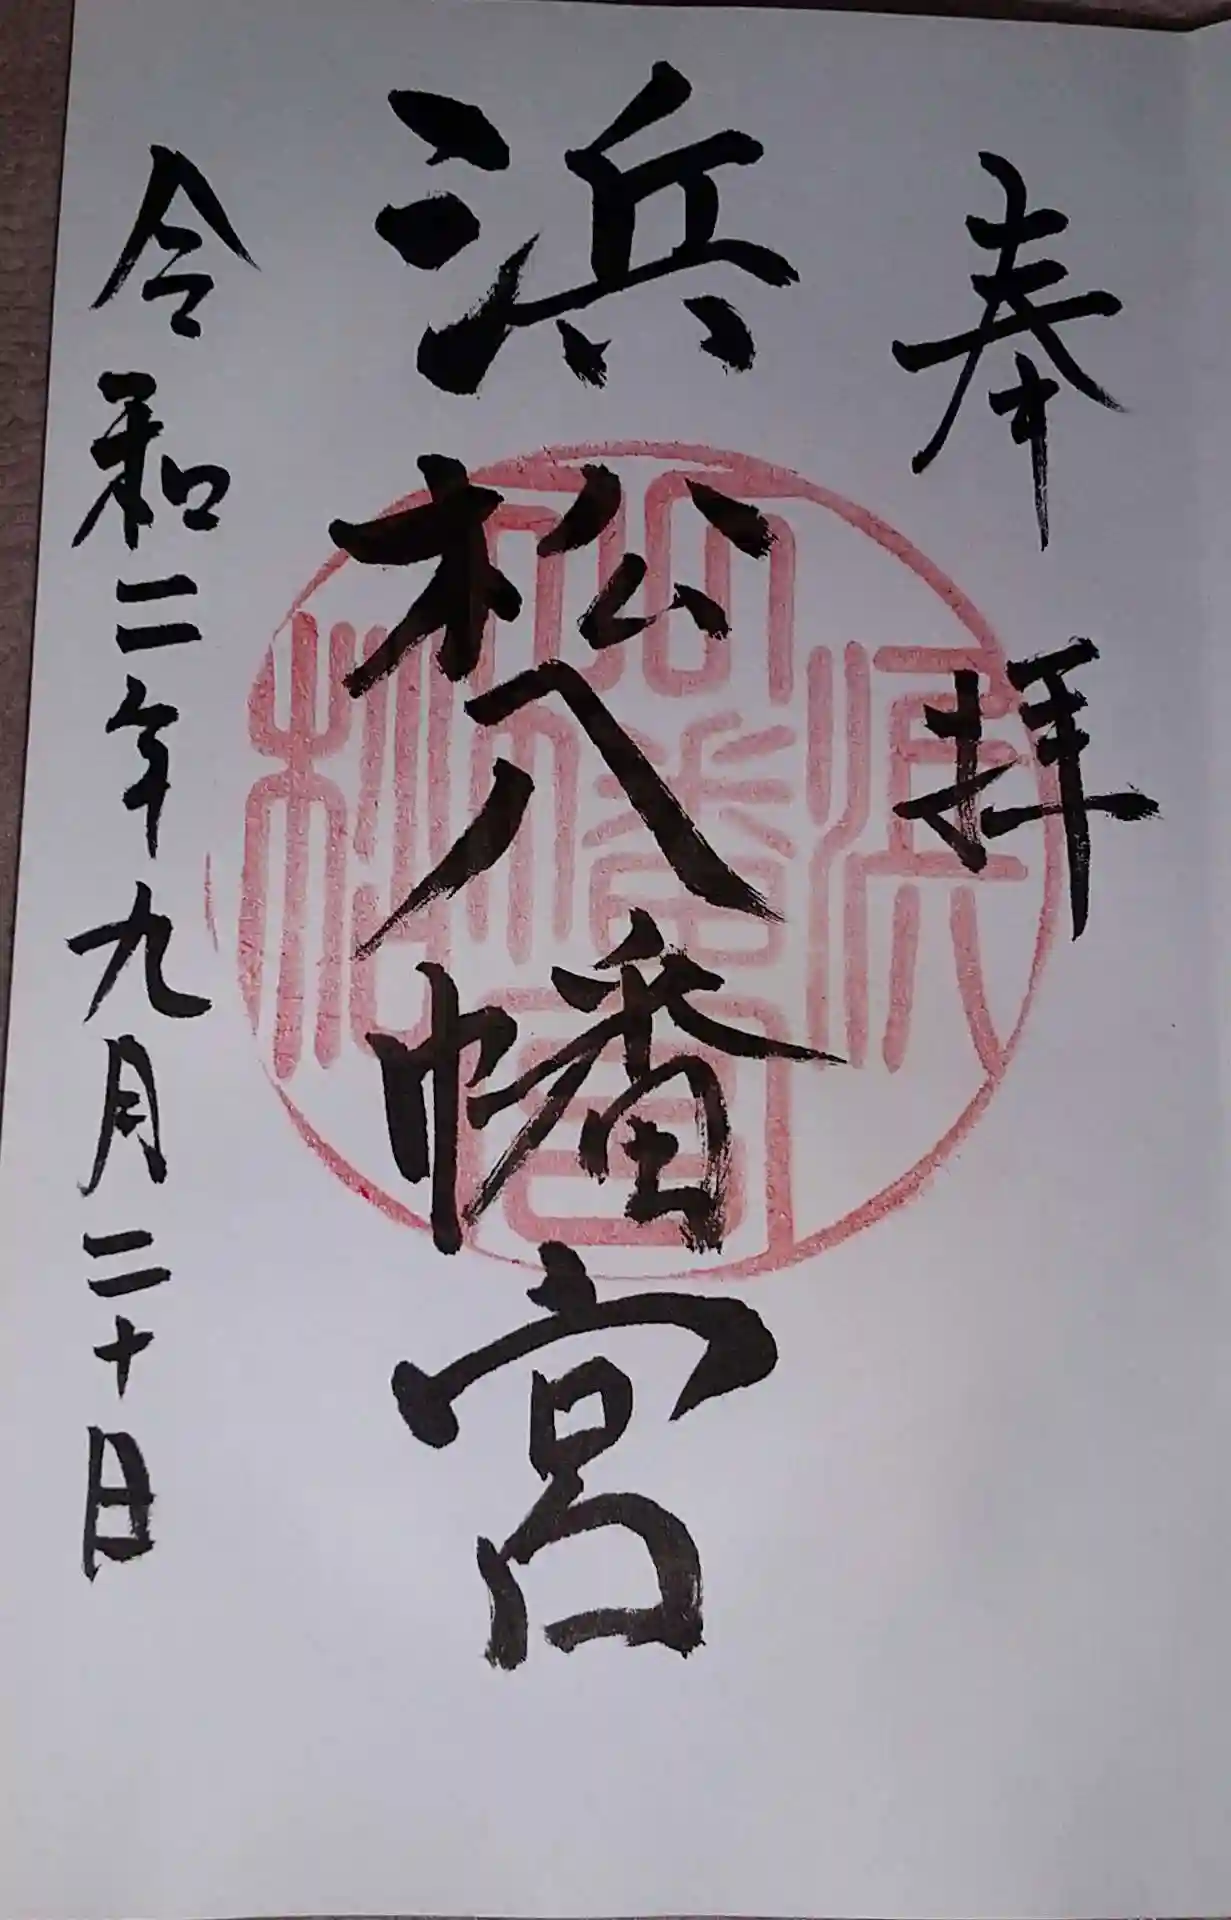 奉拝
浜松八幡宮
令和二年九月二十日
浜松八幡宮